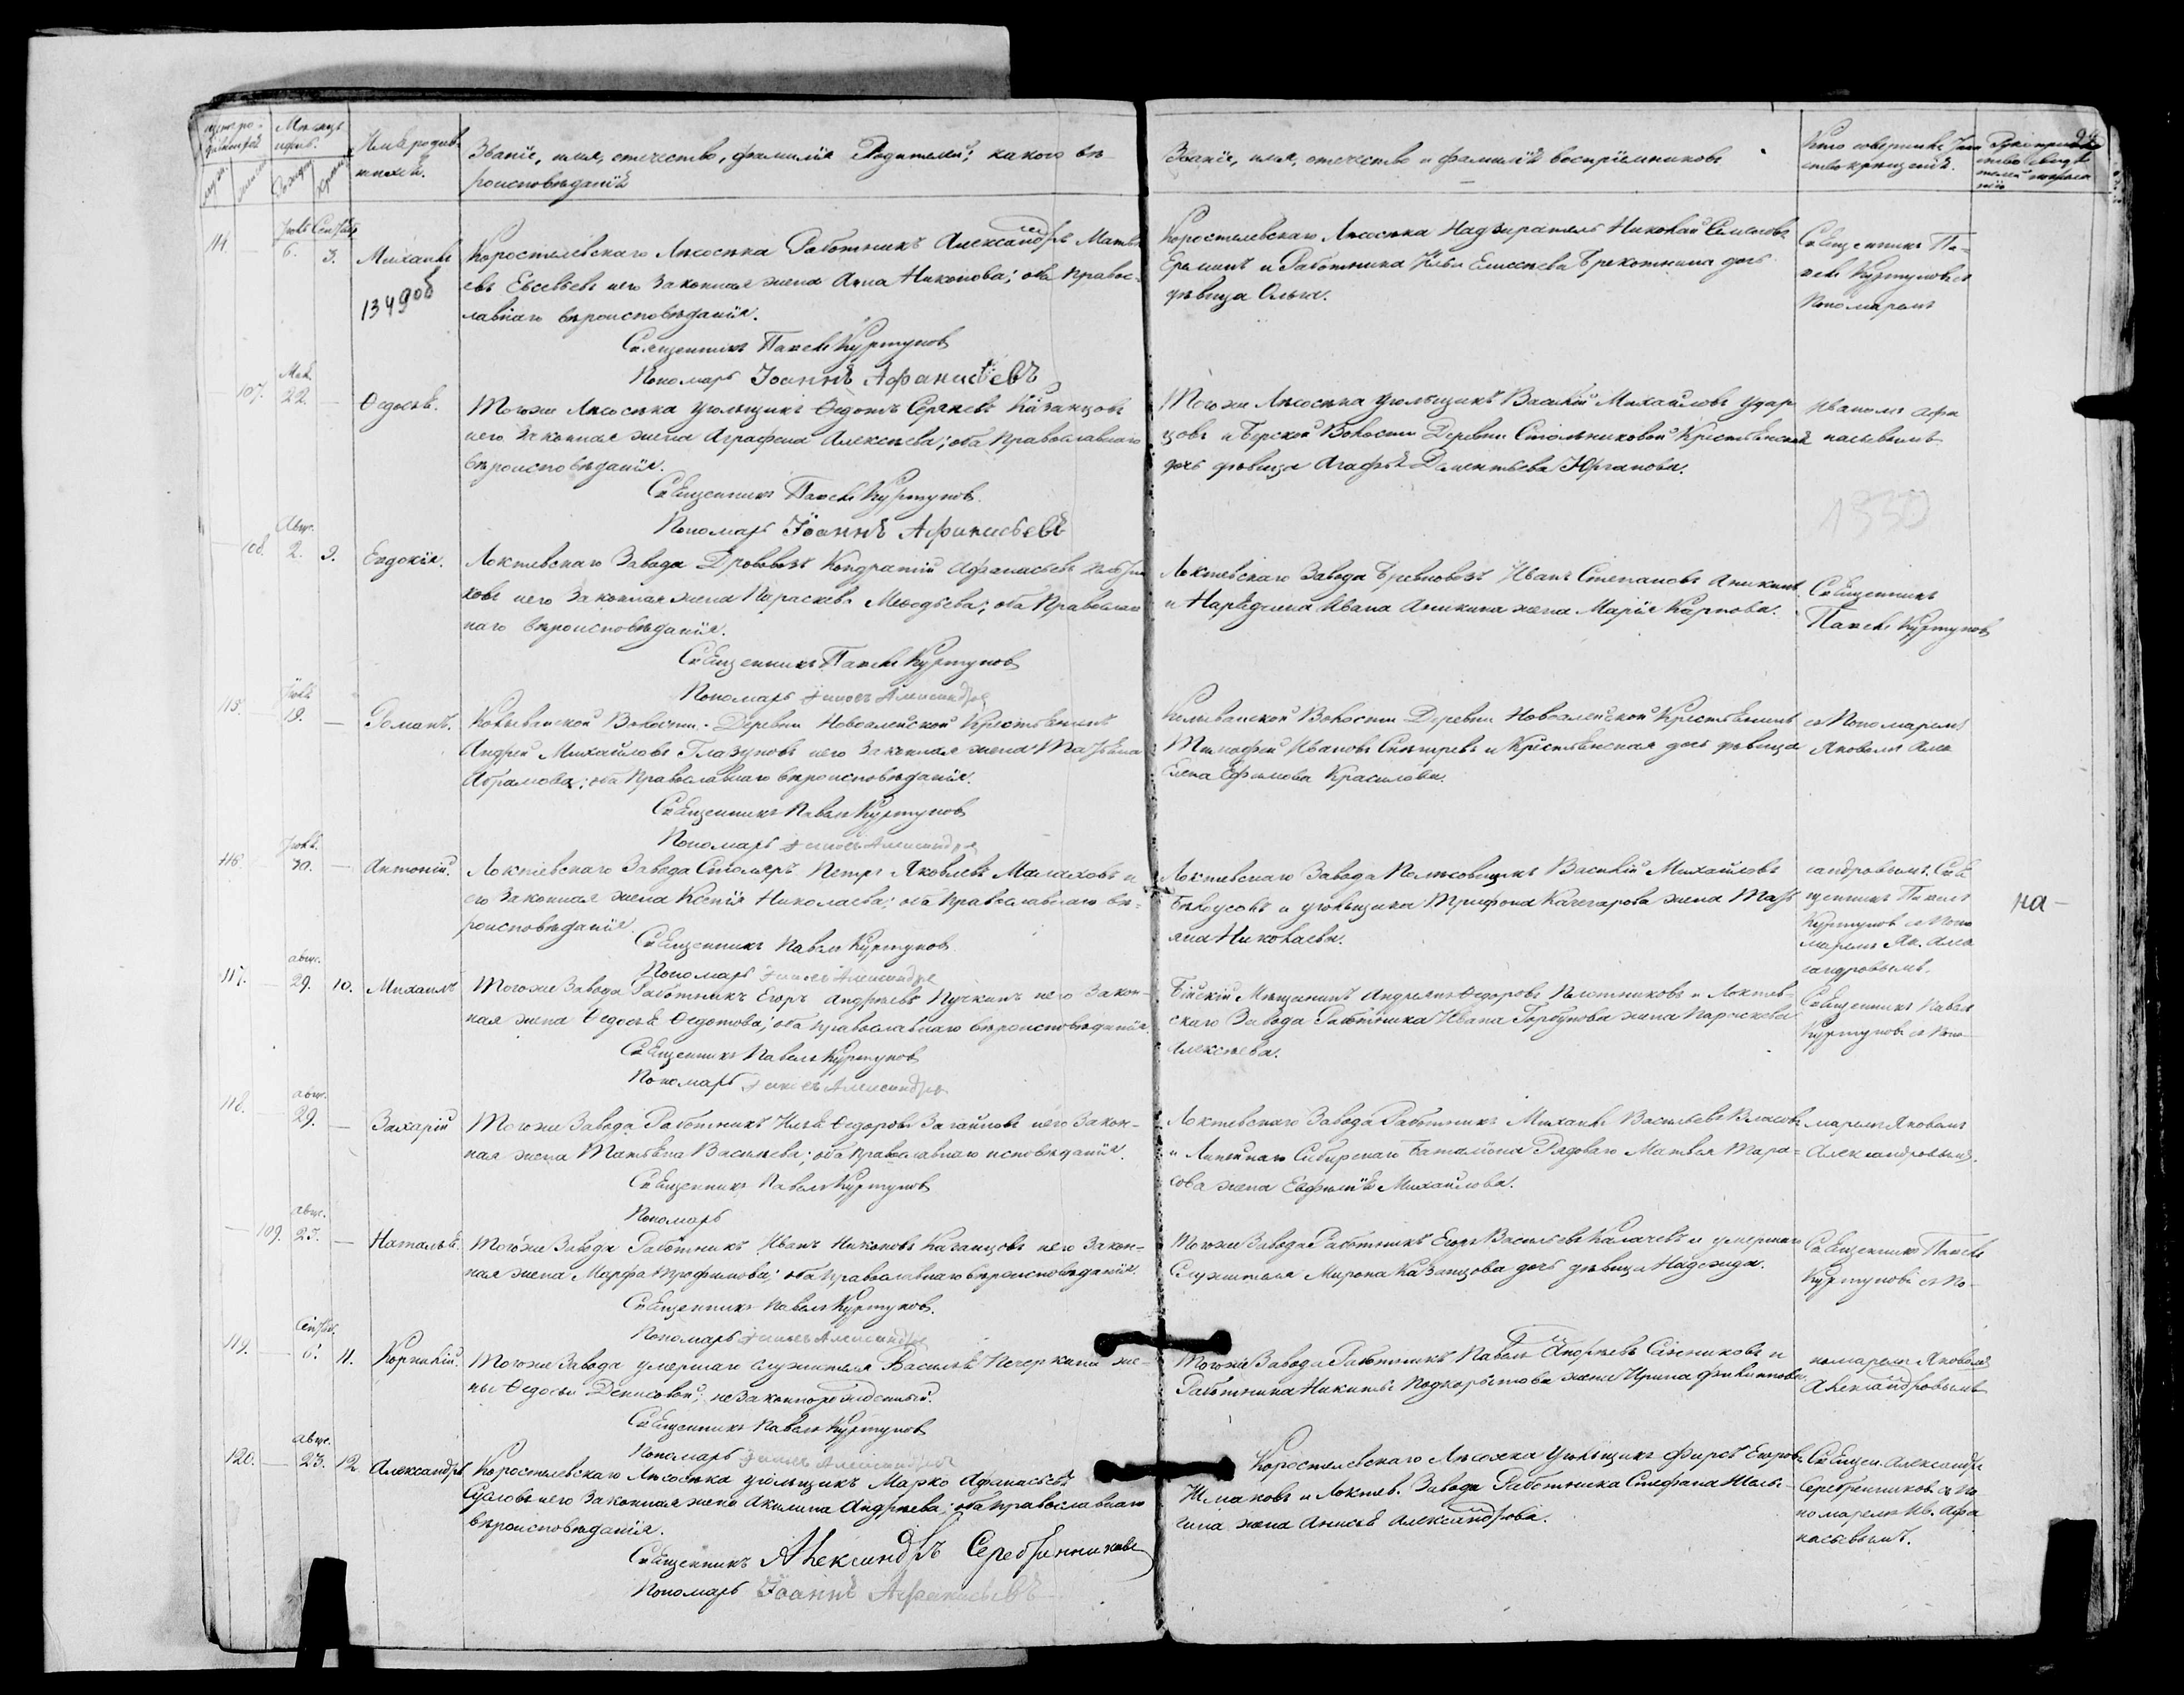 Звание, имя, отчество, фамилия Родителей; какого вѣ-
роисповѣданія
Званіе, имя, отечество и фамилія воспріемниковъ
Имя родив-
шихся.
114. 6. 3. Михаилъ
1349об
Коростелевскаго Лѣсосѣка Работникъ Александръ Матве-
евъ Евсевьевъ и его законная жена Анна Никонова; оба Правос-
лавнаго вѣроисповѣданія.
Священникъ Павелъ Куртуковъ
Пономарь Іоаннъ Афанасьевъ
Коростелевскаго Лѣсосѣка Надзиратель Николай Семеновъ
Ереминъ и Работника Ильи Елисеева дочь
дѣвица Ольга.
Священникъ Па-
велъ Куртуковъ съ
Пономаремъ
107. 22. Ѳедосья.
Тогоже Лѣсосѣка угольщикъ Ѳедотъ Сергѣевъ Казанцовъ
и его законная жена Аграфена Алексѣева; оба Православнаго
вѣроисповѣданія.
Священникъ Павелъ Куртуковъ
Пономарь Іоаннъ Афанасьевъ
Тогоже Лѣсосѣка угольщикъ Василій Михайловъ Удар-
цовъ и Волости Деревни Крестьянская
дочь дѣвица Агафья Дементьева Юрганова.
Иваномъ Афа-
насьевымъ
1350
108. Авг. 2. 9. Евдокія.
Локтевскаго Завода Дрововозъ Кондратій Афанасьевъ
и его законная жена Параскева Меѳодьева; оба Православ-
наго вѣроисповѣданія.
Священникъ Павелъ Куртуковъ
Пономарь Іаковъ Александровъ
Локтевскаго Завода Иванъ Степановъ Аникинъ
и Ивана Аникина жена Марія Карпова.
Священникъ
Павелъ Куртуковъ
115. 19. Романъ.
Колыванской Волости Деревни Новоалейской Крестьянинъ
Андрей Михайловъ Глазуновъ и его законная жена Татьяна
Абрамова; оба Православнаго вѣроисповѣданія.
Священникъ Павелъ Куртуковъ
Пономарь Іаковъ Александровъ
Колыванской Волости Деревни Новоалейской Крестьянинъ
Тимофей Ивановъ Снегиревъ и Крестьянская дочь дѣвица
Елена Ефимова Красилова.
съ Пономаремъ
Яковомъ Але-
116. 30. Антоній.
Локтевскаго Завода Столяръ Петръ Яковлевъ Малаховъ и
его законная жена Ксенія Николаева; оба Православнаго вѣ-
роисповѣданія.
Священникъ Павелъ Куртуковъ
Пономарь Іаковъ Александровъ
Локтевскаго Завода Василій Михайловъ
Бѣлоусовъ и угольщика Трифона Качегарова жена Тать-
яна Николаева.
сандровымъ. Свя-
щенникъ Павелъ
Куртуковъ съ Поно-
маремъ Як. Але-
сандровымъ.
на-
117. авг. 29. 10. Михаилъ
Тогоже Завода Работникъ Егоръ Андреевъ Пучкинъ и его закон-
ная жена Ѳедосья Ѳедотова; оба православнаго вѣроисповѣданія.
Священникъ Павелъ Куртуковъ
Пономарь Іаковъ Александровъ
Бійскій Мѣщанинъ Андреянъ Ѳедоровъ Плотниковъ и Локтев-
скаго Завода Работника Ивана Горбунова жена Параскева
Алексѣева.
Священникъ Павелъ
Куртуковъ съ Поно-
118. авг. 29. Захарій
Тогоже Завода Работникъ Илья Ѳедоровъ Загайновъ и его закон-
ная жена Татьяна Васильева; оба Православнаго исповѣданія.
Священникъ Павелъ Куртуковъ
Пономарь
Локтевскаго Завода Работникъ Михаилъ Васильевъ Власовъ
и Линейнаго Сибирскаго Баталіона Рядоваго Матвея Тара-
сова жена Евфимія Михайлова.
маремъ Яковомъ
Александровымъ.
109. авг. 27. Наталья.
Тогоже Завода Работникъ Иванъ Никоновъ Казанцовъ и его закон-
ная жена Марфа Трофимова; оба Православнаго вѣроисповѣданія.
Священникъ Павелъ Куртуковъ.
Пономарь Іаковъ Александровъ
Тогоже Завода Работникъ Егоръ Васильевъ Калачевъ и умершаго
Служителя Мирона Казанцова дочь дѣвица Надежда.
Священникъ Павелъ
Куртуковъ съ По-
119. Сентяб. 6. 11. Корнилій.
Тогоже Завода умершаго служителя Василья Печеркина же-
ны Ѳедосьи Денисовой; незаконнорожденный.
Священникъ Павелъ Куртуковъ
Пономарь Іаковъ Александровъ
Тогоже Завода Работникъ Павелъ Андреевъ Санниковъ и
Работника Никиты Подкорытова жена Ирина Филиппова.
номаремъ Яковомъ
Александровымъ
120. авг. 23. 12. Александръ
Коростелевскаго Лѣсосѣка угольщикъ Марко Афанасьевъ
Сусловъ и его законная жена Акилина Андреева; оба православнаго
вѣроисповѣданія.
Священникъ Александръ Серебренниковъ
Пономарь Іоаннъ Афанасьевъ
Коростелевскаго Лѣсосѣка Угольщикъ Фирсъ Егоровъ
Шмаковъ и Локтев. Завода Работника Стефана
жена Анисья Александрова.
Священ. Александръ
Серебренниковъ съ По-
номаремъ Ив. Афа-
насьевымъ.